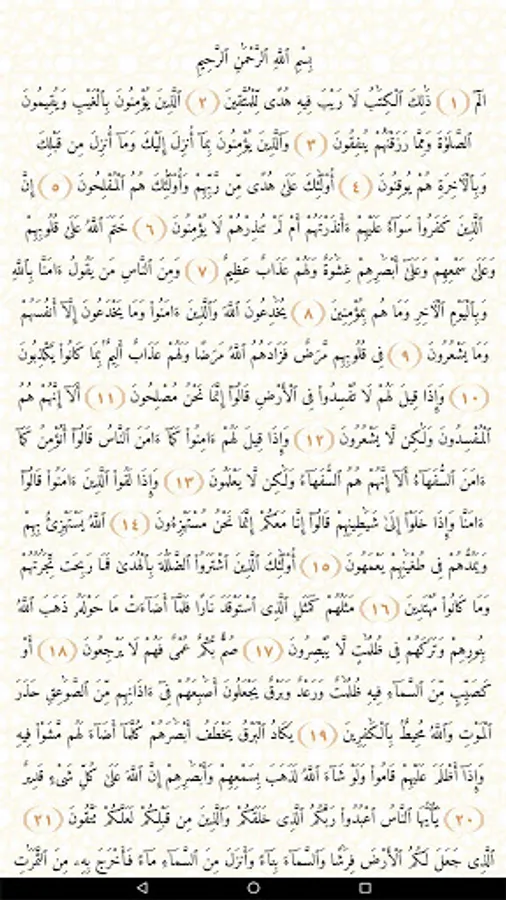 بِسْمِ ٱللَّهِ ٱلرَّحْمَٰنِ ٱلرَّحِيمِ
الٓمٓ (١) ذَٰلِكَ ٱلْكِتَٰبُ لَا رَيْبَ فِيهِ هُدًى لِّلْمُتَّقِينَ (٢) ٱلَّذِينَ يُؤْمِنُونَ بِٱلْغَيْبِ وَيُقِيمُونَ
ٱلصَّلَوٰةَ وَمِمَّا رَزَقْنَٰهُمْ يُنفِقُونَ (٣) وَٱلَّذِينَ يُؤْمِنُونَ بِمَآ أُنزِلَ إِلَيْكَ وَمَآ أُنزِلَ مِن قَبْلِكَ
وَبِٱلْءَاخِرَةِ هُمْ يُوقِنُونَ (٤) أُو۟لَٰٓئِكَ عَلَىٰ هُدًى مِّن رَّبِّهِمْ وَأُو۟لَٰٓئِكَ هُمُ ٱلْمُفْلِحُونَ (٥) إِنَّ
ٱلَّذِينَ كَفَرُوا۟ سَوَآءٌ عَلَيْهِمْ ءَأَنذَرْتَهُمْ أَمْ لَمْ تُنذِرْهُمْ لَا يُؤْمِنُونَ (٦) خَتَمَ ٱللَّهُ عَلَىٰ قُلُوبِهِمْ
وَعَلَىٰ سَمْعِهِمْ وَعَلَىٰٓ أَبْصَٰرِهِمْ غِشَٰوَةٌ وَلَهُمْ عَذَابٌ عَظِيمٌ (٧) وَمِنَ ٱلنَّاسِ مَن يَقُولُ ءَامَنَّا بِٱللَّهِ
وَبِٱلْيَوْمِ ٱلْءَاخِرِ وَمَا هُم بِمُؤْمِنِينَ (٨) يُخَٰدِعُونَ ٱللَّهَ وَٱلَّذِينَ ءَامَنُوا۟ وَمَا يَخْدَعُونَ إِلَّآ أَنفُسَهُمْ
وَمَا يَشْعُرُونَ (٩) فِى قُلُوبِهِم مَّرَضٌ فَزَادَهُمُ ٱللَّهُ مَرَضًا وَلَهُمْ عَذَابٌ أَلِيمٌۢ بِمَا كَانُوا۟ يَكْذِبُونَ
(١٠) وَإِذَا قِيلَ لَهُمْ لَا تُفْسِدُوا۟ فِى ٱلْأَرْضِ قَالُوٓا۟ إِنَّمَا نَحْنُ مُصْلِحُونَ (١١) أَلَآ إِنَّهُمْ هُمُ
ٱلْمُفْسِدُونَ وَلَٰكِن لَّا يَشْعُرُونَ (١٢) وَإِذَا قِيلَ لَهُمْ ءَامِنُوا۟ كَمَآ ءَامَنَ ٱلنَّاسُ قَالُوٓا۟ أَنُؤْمِنُ كَمَآ
ءَامَنَ ٱلسُّفَهَآءُ أَلَآ إِنَّهُمْ هُمُ ٱلسُّفَهَآءُ وَلَٰكِن لَّا يَعْلَمُونَ (١٣) وَإِذَا لَقُوا۟ ٱلَّذِينَ ءَامَنُوا۟ قَالُوٓا۟
ءَامَنَّا وَإِذَا خَلَوْا۟ إِلَىٰ شَيَٰطِينِهِمْ قَالُوٓا۟ إِنَّا مَعَكُمْ إِنَّمَا نَحْنُ مُسْتَهْزِءُونَ (١٤) ٱللَّهُ يَسْتَهْزِئُ بِهِمْ
وَيَمُدُّهُمْ فِى طُغْيَٰنِهِمْ يَعْمَهُونَ (١٥) أُو۟لَٰٓئِكَ ٱلَّذِينَ ٱشْتَرَوُا۟ ٱلضَّلَٰلَةَ بِٱلْهُدَىٰ فَمَا رَبِحَت تِّجَٰرَتُهُمْ
وَمَا كَانُوا۟ مُهْتَدِينَ (١٦) مَثَلُهُمْ كَمَثَلِ ٱلَّذِى ٱسْتَوْقَدَ نَارًا فَلَمَّآ أَضَآءَتْ مَا حَوْلَهُۥ ذَهَبَ ٱللَّهُ
بِنُورِهِمْ وَتَرَكَهُمْ فِى ظُلُمَٰتٍ لَّا يُبْصِرُونَ (١٧) صُمٌّۢ بُكْمٌ عُمْىٌ فَهُمْ لَا يَرْجِعُونَ (١٨) أَوْ
كَصَيِّبٍ مِّنَ ٱلسَّمَآءِ فِيهِ ظُلُمَٰتٌ وَرَعْدٌ وَبَرْقٌ يَجْعَلُونَ أَصَٰبِعَهُمْ فِىٓ ءَاذَانِهِم مِّنَ ٱلصَّوَٰعِقِ حَذَرَ
ٱلْمَوْتِ وَٱللَّهُ مُحِيطٌۢ بِٱلْكَٰفِرِينَ (١٩) يَكَادُ ٱلْبَرْقُ يَخْطَفُ أَبْصَٰرَهُمْ كُلَّمَآ أَضَآءَ لَهُم مَّشَوْا۟ فِيهِ
وَإِذَآ أَظْلَمَ عَلَيْهِمْ قَامُوا۟ وَلَوْ شَآءَ ٱللَّهُ لَذَهَبَ بِسَمْعِهِمْ وَأَبْصَٰرِهِمْ إِنَّ ٱللَّهَ عَلَىٰ كُلِّ شَىْءٍ قَدِيرٌ
(٢٠) يَٰٓأَيُّهَا ٱلنَّاسُ ٱعْبُدُوا۟ رَبَّكُمُ ٱلَّذِى خَلَقَكُمْ وَٱلَّذِينَ مِن قَبْلِكُمْ لَعَلَّكُمْ تَتَّقُونَ (٢١)
ٱلَّذِى جَعَلَ لَكُمُ ٱلْأَرْضَ فِرَٰشًا وَٱلسَّمَآءَ بِنَآءً وَأَنزَلَ مِنَ ٱلسَّمَآءِ مَآءً فَأَخْرَجَ بِهِۦ مِنَ ٱلثَّمَرَٰتِ